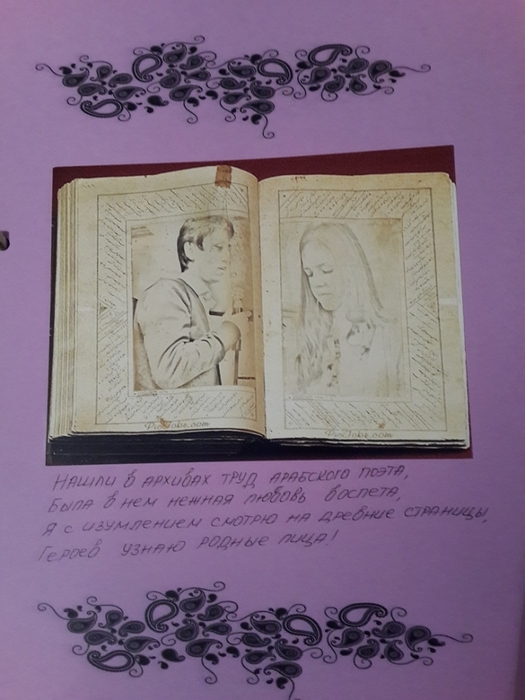 PhoToke.com
PhoToke.com
Нашли в архивах труд арабского поэта,
Была в нем нежная любовь воспета,
Я с изумлением смотрю на древние страницы,
Героев узнаю родные лица!